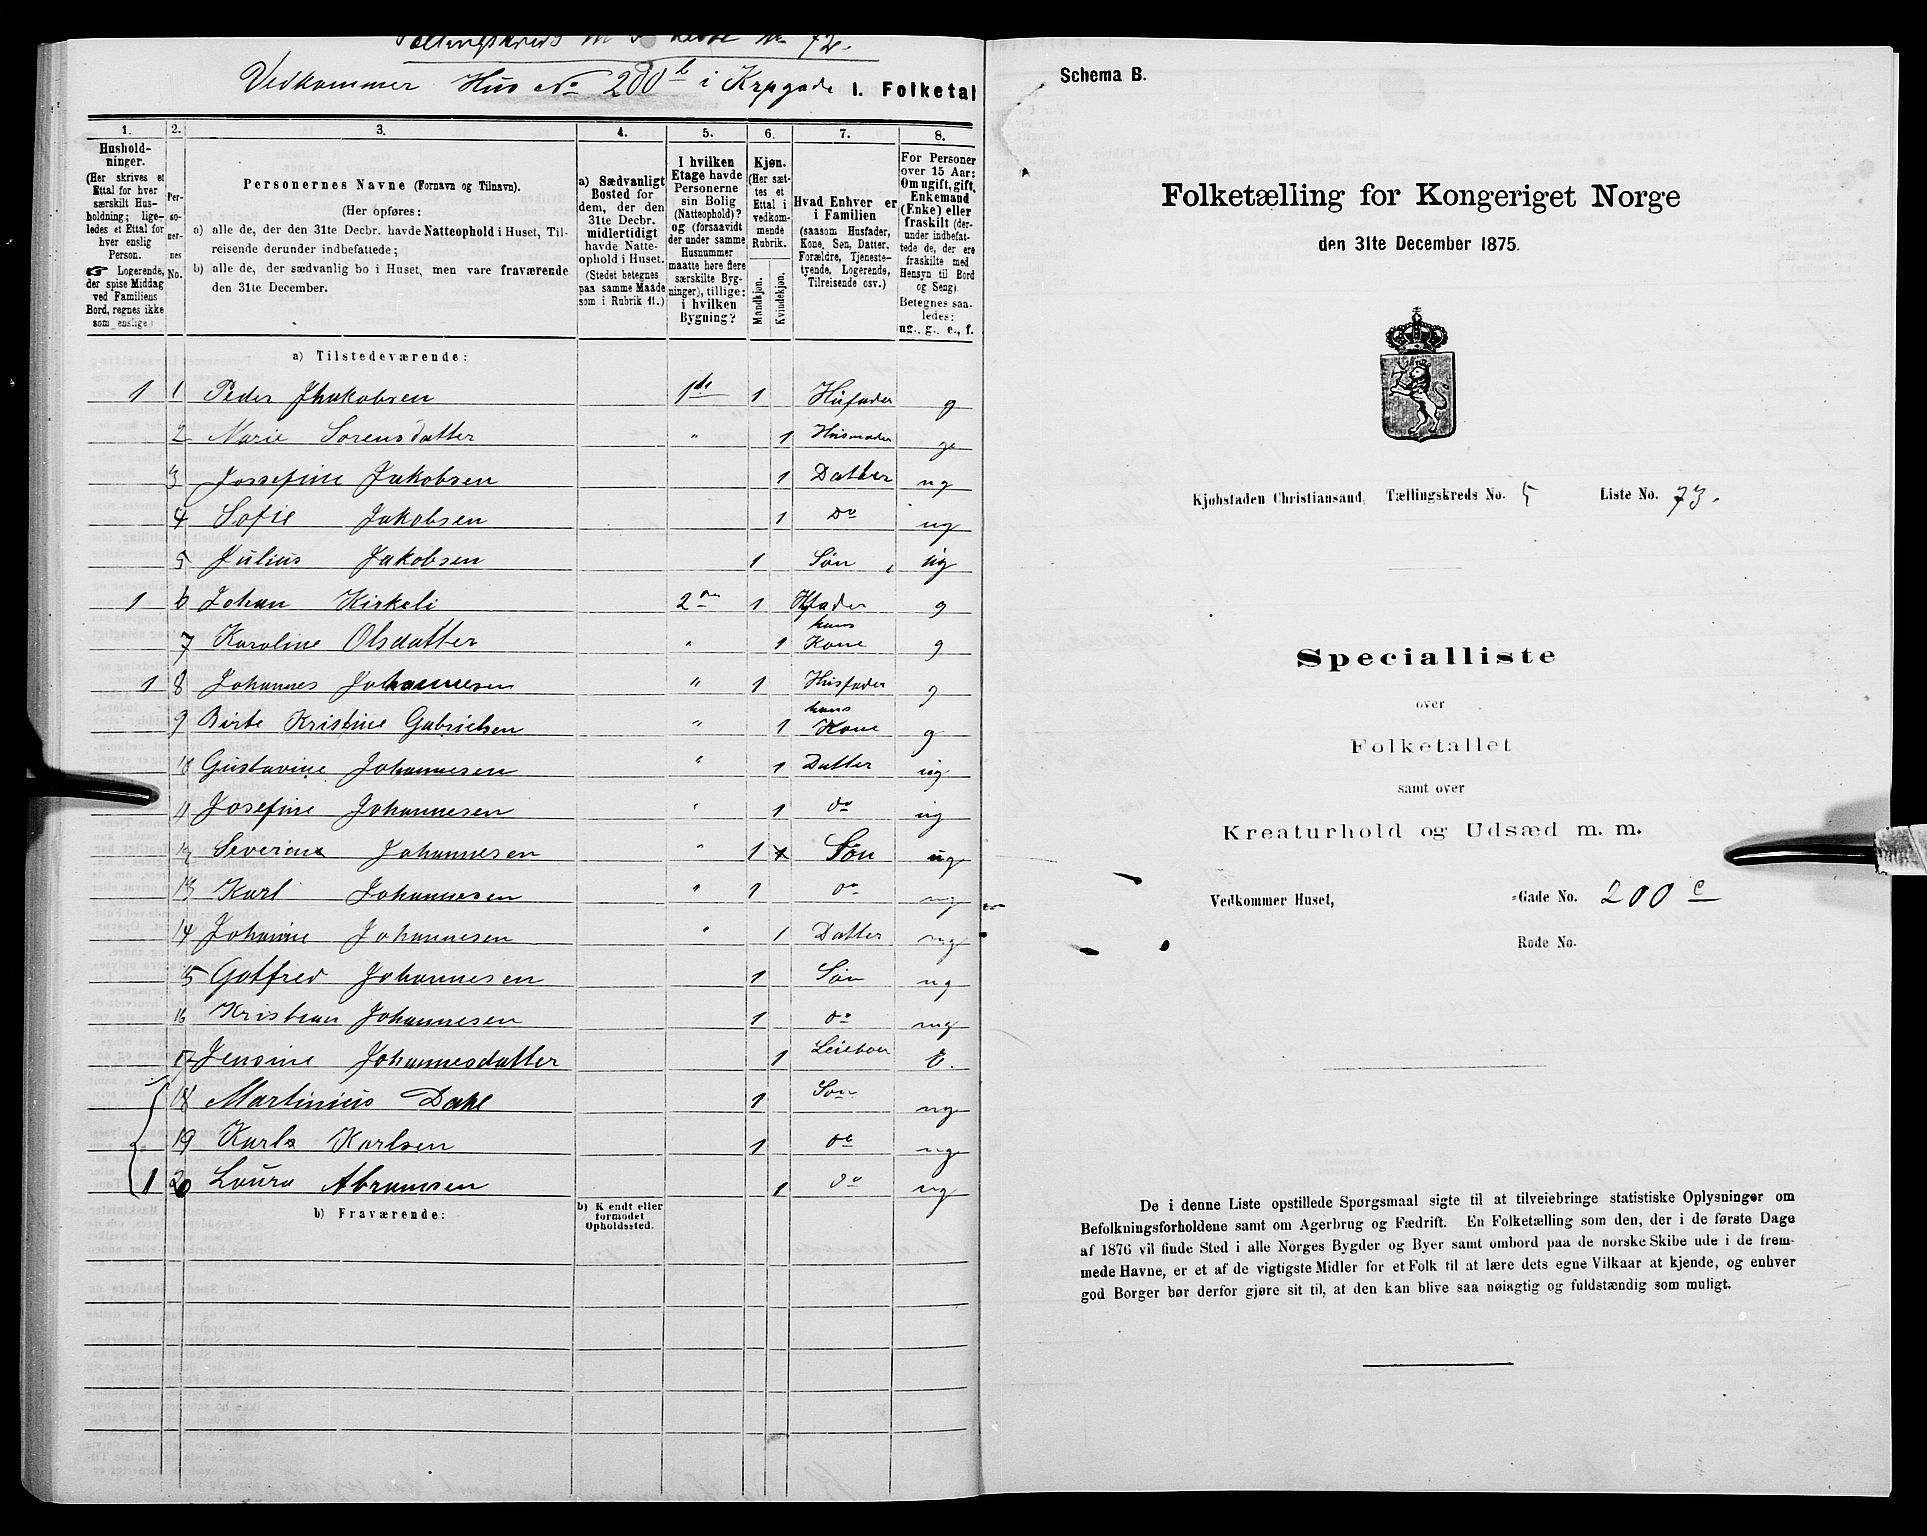 Tællingskreds No 5 Liste No 72.
Vedkommer Hus No 200 b i Krpgade I. Folketal
1. 2. 3. 4. 5. 6. 7. 8.
Hushold-
ninger.
(Her skrives et
Ettal for hver
særskilt Hus-
holdning; lige-
ledes et Ettal for
hver enslig
Person.
☞ Logerende,
der spise Middag
ved Familiens
Bord, regnes ikke
som enslige)
Per-
so-
ner-
nes
No.
Personernes Navne (Fornavn og Tilnavn).
(Her opføres:
a) alle de, der den 31te Decbr. havde Natteophold i Huset, Til-
reisende derunder indbefattede;
b) alle de, der sædvanlig bo i Huset, men vare fraværende
den 31te December.
a) Sædvanligt
Bosted for
dem, der den
31te Decbr.
midlertidigt
havde Natte-
ophold i Huset.
(Stedet betegnes
paa samme Maade
som i Rubrik 11.)
I hvilken
Etage havde
Personerne
sin Bolig
(Natteophold)?
og (forsaavidt
der under samme
Husnummer
maatte høre flere
særskilte Byg-
ninger), tillige:
i hvilken
Bygning?
Kjøn.
(Her sæt-
tes et
Ettal i
vedkom-
mende
Rubrik.
Mandkjøn.
Kvindekjøn.
Hvad Enhver er
i Familien
(saasom Husfader,
Kone, Søn, Datter,
Forældre, Tjeneste-
tyende, Logerende,
Tilreisende osv.)
For Personer
over 15 Aar:
Om ugift, gift,
Enkemand
(Enke) eller
fraskilt (der-
under indbefat-
tede de, der ere
fraskilte med
Hensyn til Bord
og Seng).
Betegnes saa-
ledes:
ug., g., e., f.
a) Tilstedeværende:
1 1 Peder Jhakobsen 1ste 1 Husfader g
2 Marie Sorensdatter " 1 Husmoder g
3 Jossefine Jakobsen 1 Datter ug
4 Sofie Jakobsen 1 Do ug
5 Julius Jakobsen 1 Søn ug
1 6 Johan Kirkeli 2den 1 Hfader g
7 Karoline Olsdatter " 1 hans Kone g
1 8 Johannes Johannesen " 1 Husfader g
9 Birte Kristine Gabrielsen " 1 hans Kone g
10 Gustavine Johannesen " 1 Datter ug
11 Josefine Johannesen " 1 do ug
12 Severin Johannesen " 1 Søn ug
13 Karl Johannesen " 1 do ug
14 Johanne Johannesen " 1 Datter ug
15 Gotfred Johannesen 1 Søn ug
16 Kristian Johannesen 1 do ug
17 Jensine Johannesdatter 1 Leieboer E.
18 Martinius Dahl 1 Søn ug
19 Karl Karlsen 1 do ug
1 20 Laura Abramsen 1 do ug
b) Fraværende:
b) Kjendt eller
formodet
Opholdssted.
Schema B.
Folketælling for Kongeriget Norge
den 31te December 1875.
Kjøbstaden Christiansand, Tællingskreds No. 5 Liste No. 73.
Specialliste
over
Folketallet
samt over
Kreaturhold og Udsæd m. m.
Vedkommer Huset, -Gade No. 200 c
Rode No.
De i denne Liste opstillede Spørgsmaal sigte til at tilveiebringe statistiske Oplysninger om
Befolkningsforholdene samt om Agerbrug og Fædrift. En Folketælling som den, der i de første Dage
af 1876 vil finde Sted i alle Norges Bygder og Byer samt ombord paa de norske Skibe ude i de frem-
mede Havne, er et af de vigtigste Midler for et Folk til at lære dets egne Vilkaar at kjende, og enhver
god Borger bør derfor gjøre sit til, at den kan blive saa nøiagtig og fuldstændig som muligt.